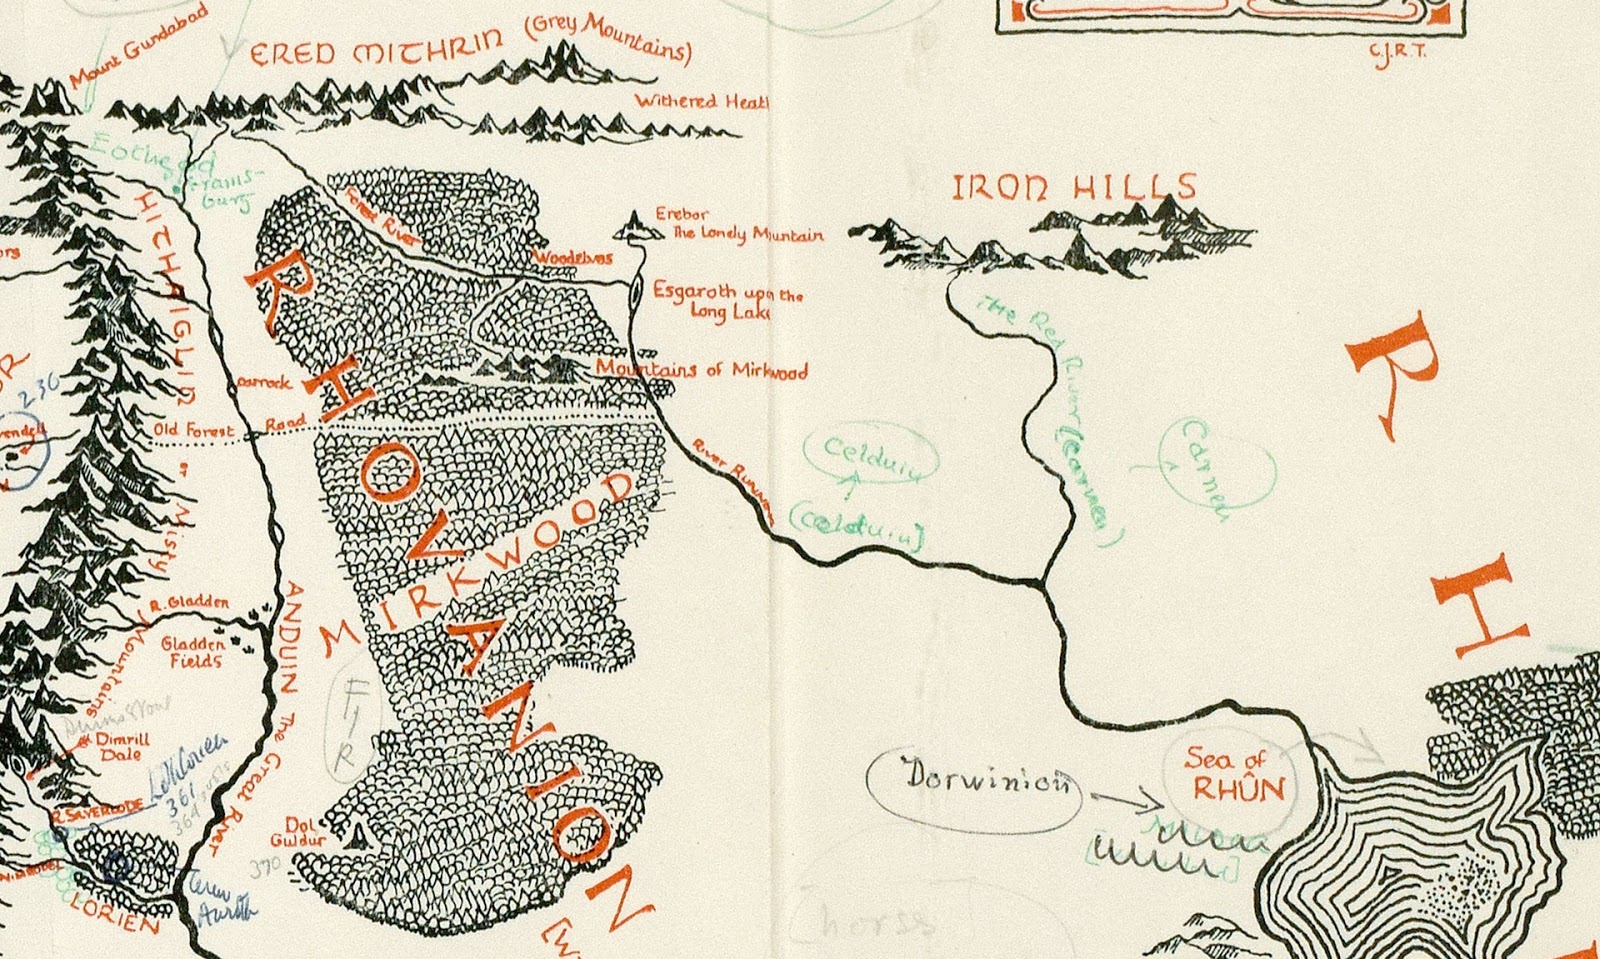 C.J.R.T.
Mount Gundabad
ERED MITHRIN (Grey Mountains)
Withered Heath
Eotheod
Frams-
burg
IRON HILLS
Erebor
The Lonely Mountain
Forest River
Woodelves
Esgaroth upon the
Long Lake
The Red River (Carnen)
HITHAIGLIR or Misty Mountains
Mountains of Mirkwood
Carrock
230
Old Forest Road
River Running
Celduin
(Celduin]
Carnen
RHOVANION
MIRKWOOD
R. Gladden
Gladden
Fields
ANDUIN The Great River
FIR
Dimrill
Dale
Lothlorien
361
364
R. SILVERLODE
NIMRODEL
Dol
Guldur
370
LORIEN
Cerin
Amroth
Dorwinion
Sea of
RHÛN
RH
[horse
[W